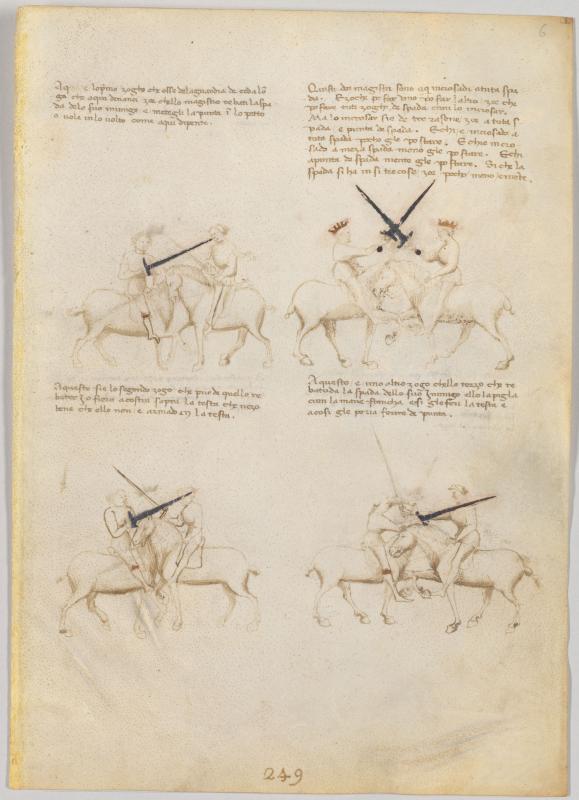 6
Aqui e lo primo zogho che esse de la guardia de coda lon
ga che aqui denanci zoe chello magistro rebati la spa
da delo suo inimigo e metegli la punta in lo petto
o vola in lo volto come aqui depento.
Questi doi magistri sono aq incrosadi a tuta spa
da. E zoche po far uno po far l altro zoe che
po fare tuti zoghi de spada cum lo incrosar.
Ma lo incrosar sie de tre rasone zoe a tuta s
pada e punta de spada. E chi e incrosado a
tuta spada pocho gle po stare. E chie incro
sado a meza spada meno gle po stare. E chi
a punta de spada niente gle po stare. Si che la
spada si ha in si tre cose zoe pocho meno e niente.
Aquesto sie lo segondo zogo che pur de quello re
bater ch fiero acostui sopra la testa che vezo
bene che ello non e armado in la testa.
Aquesto e uno altro zogo chello terzo che re
batuda la spada dello suo inimigo ello la piglia
cum la mane stancha e si gle feri la testa e
acosi gle poria ferire de punta.
249